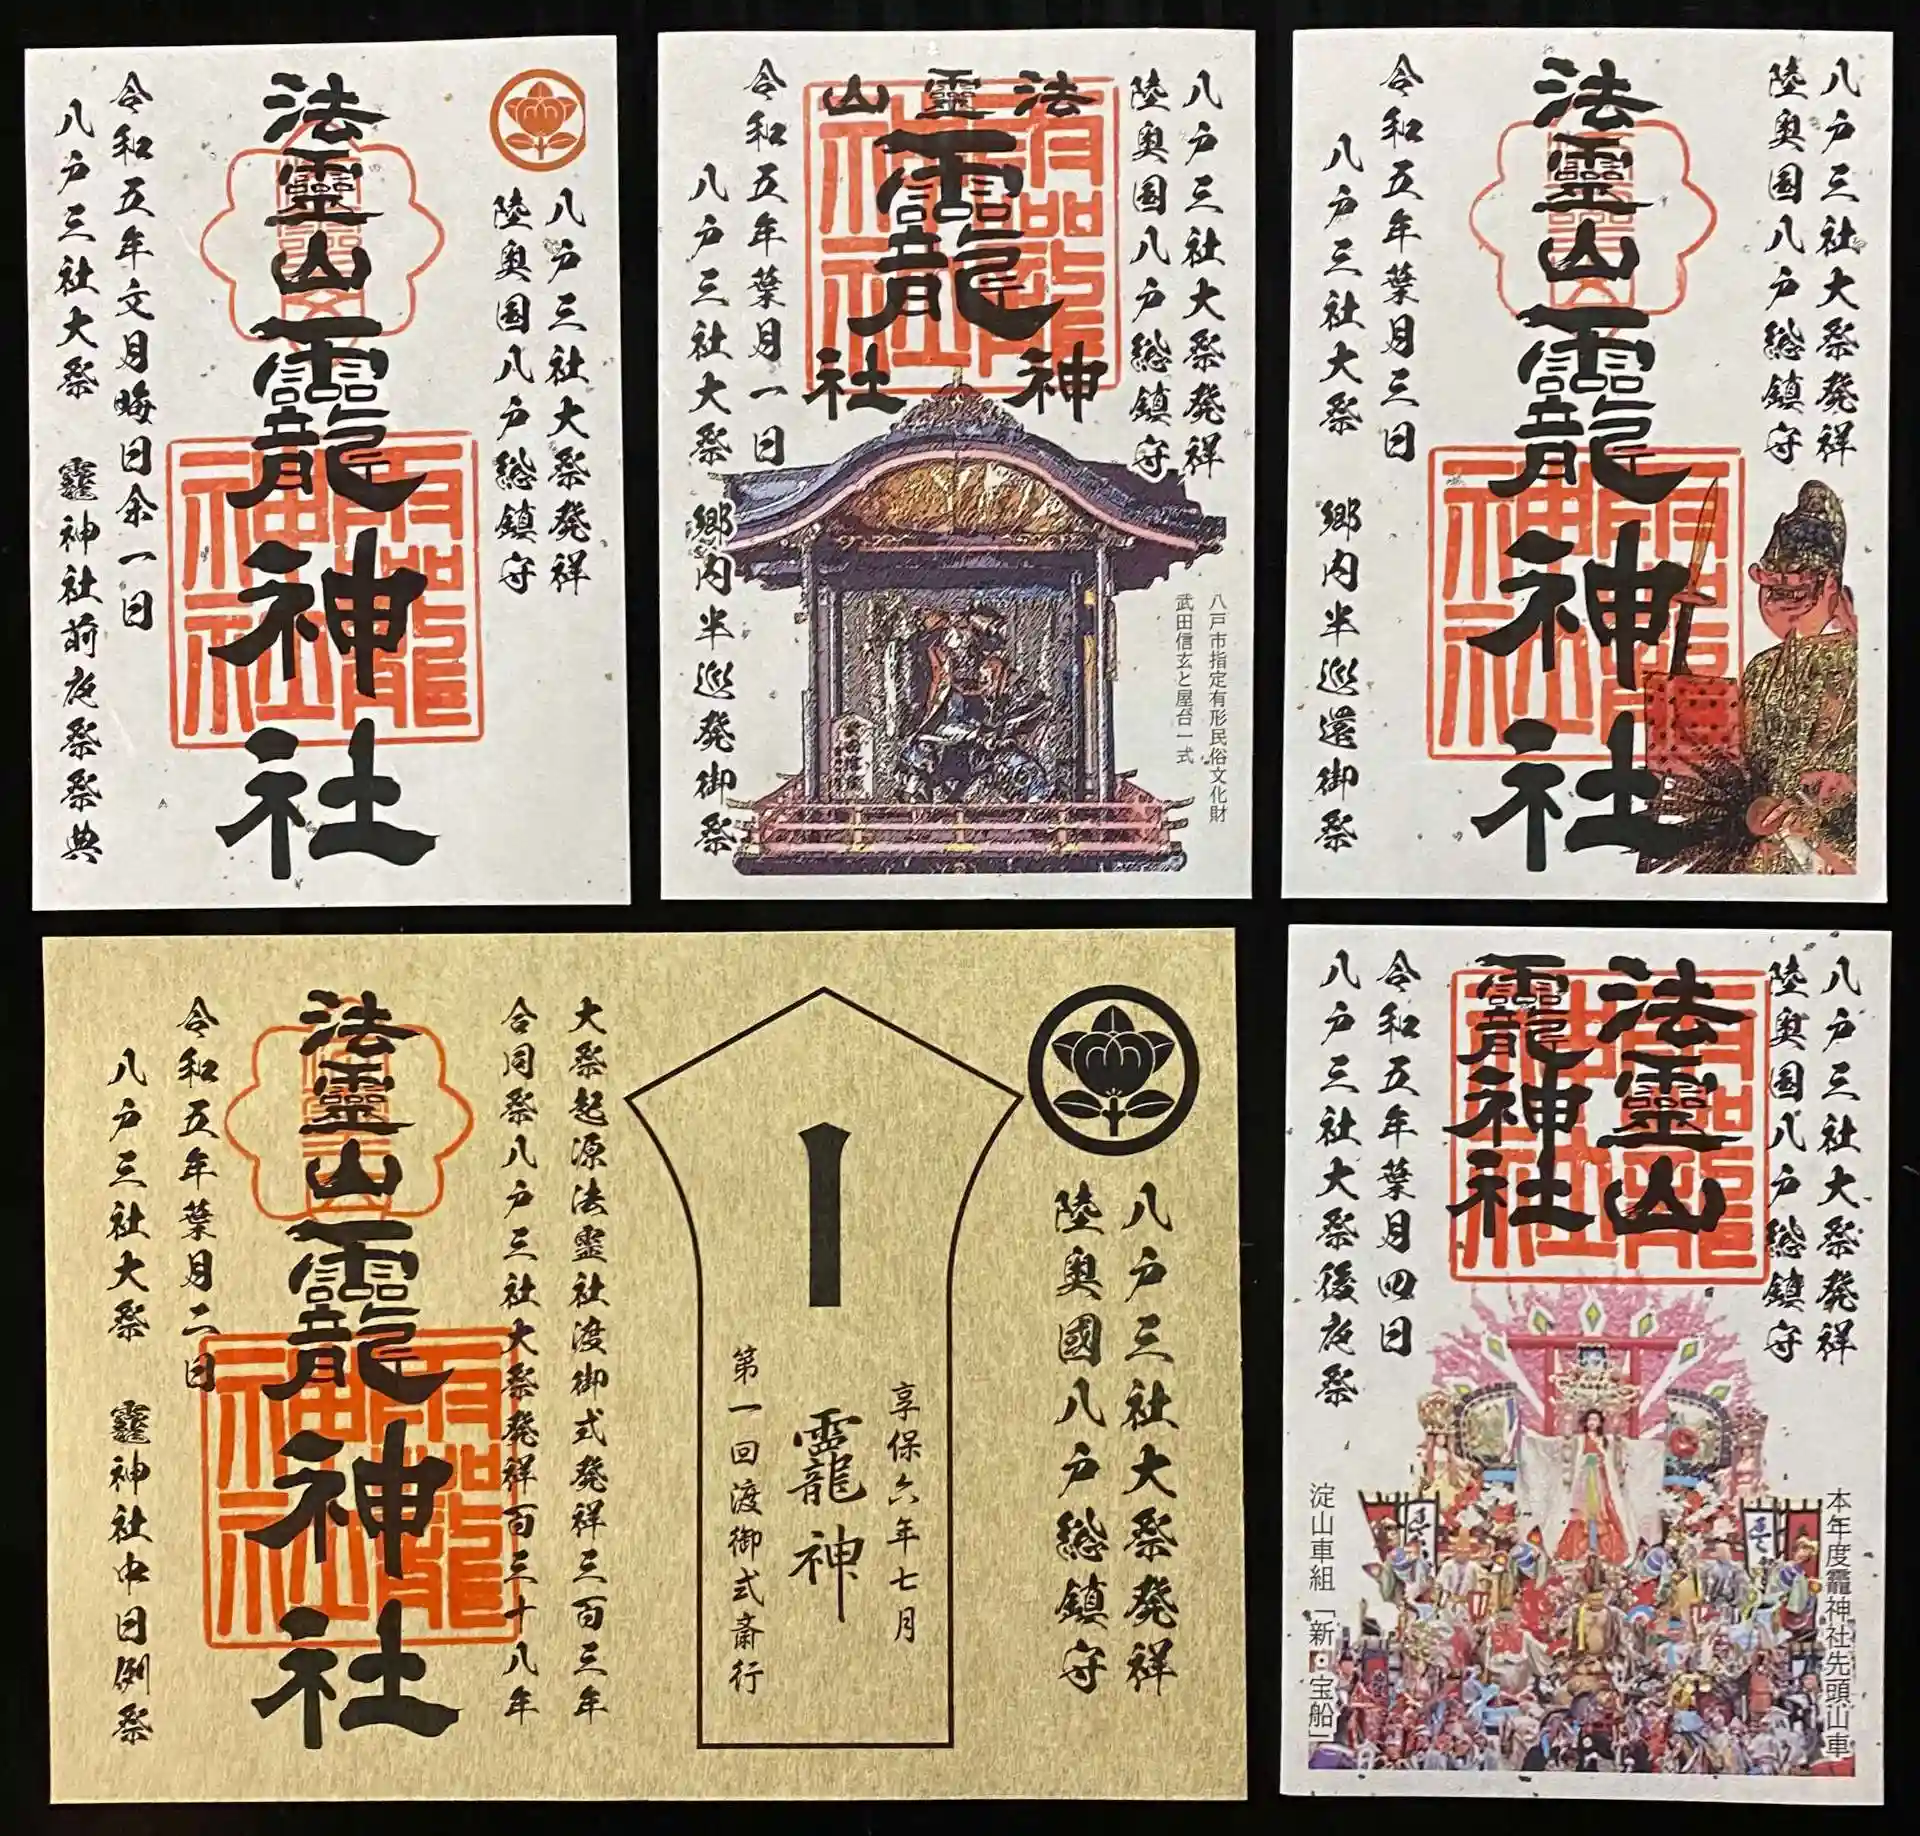 八戸三社大祭発祥
陸奥国八戸総鎮守
法靈山龗神社
令和五年文月晦日余一日
八戸三社大祭 龗神社前夜祭祭典
八戸三社大祭発祥
陸奥国八戸総鎮守
法靈山
龗
神社
令和五年葉月一日
八戸三社大祭 郷内半巡発御祭
八戸市指定有形民俗文化財
武田信玄と屋台一式
八戸三社大祭発祥
陸奥国八戸総鎮守
法靈山龗神社
令和五年葉月三日
八戸三社大祭 郷内半巡還御祭
八戸三社大祭発祥
陸奥國八戸総鎮守
享保六年七月
龗神
第一回渡御式斎行
大祭起源法霊社渡御式発祥三百三年
合同祭八戸三社大祭発祥百三十八年
法靈山龗神社
令和五年葉月二日
八戸三社大祭 龗神社中日例祭
八戸三社大祭発祥
陸奥国八戸総鎮守
法靈山
龗神社
令和五年葉月四日
八戸三社大祭後夜祭
本年度龗神社先頭山車
淀山車組「新・宝船」